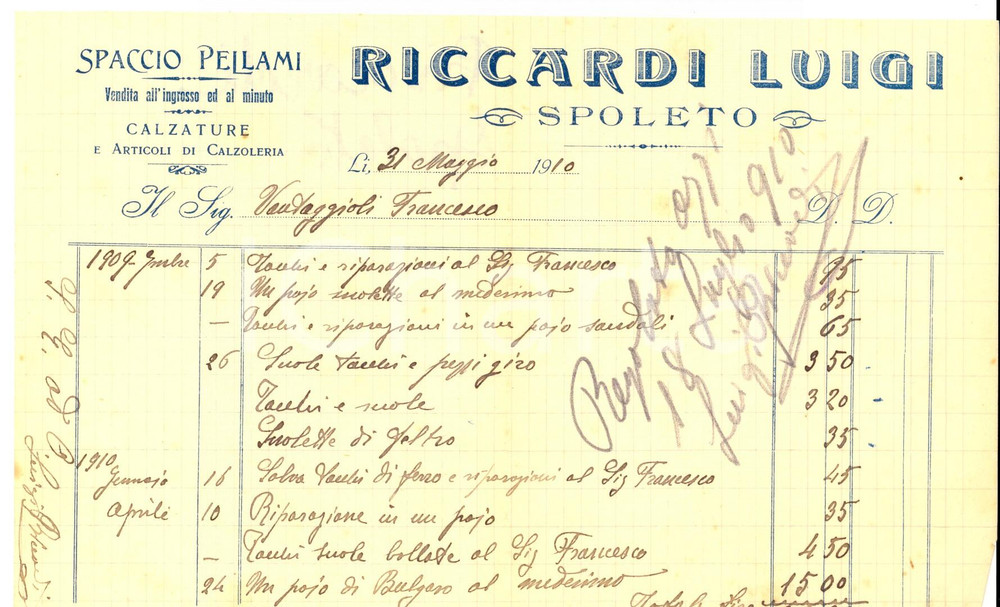 SPACCIO PELLAMI
Vendita all'ingrosso ed al minuto
CALZATURE
E ARTICOLI DI CALZOLERIA
RICCARDI LUIGI
SPOLETO
Li, 31 Maggio 1910
Il Sig. Vantaggioli Francesco D. D.
1909 9mbre 5 Tacchi e riparazioni al Sig Francesco 95
19 Un pajo suolette al medesimo 35
— Tacchi e riparazioni in un pajo sandali 65
26 Suole tacchi e pezzi giro 3 50
Tacchi e suole 3 20
Suolette di feltro 35
1910
Gennajo 16 Salva tacchi di ferro e riparazioni al Sig Francesco 45
Aprile 10 Riparazione in un pajo 35
— Tacchi suole bollate al Sig Francesco 4 50
24 Un pajo di Bulgaro al medesimo 15 00
Luglio 910
Luigi